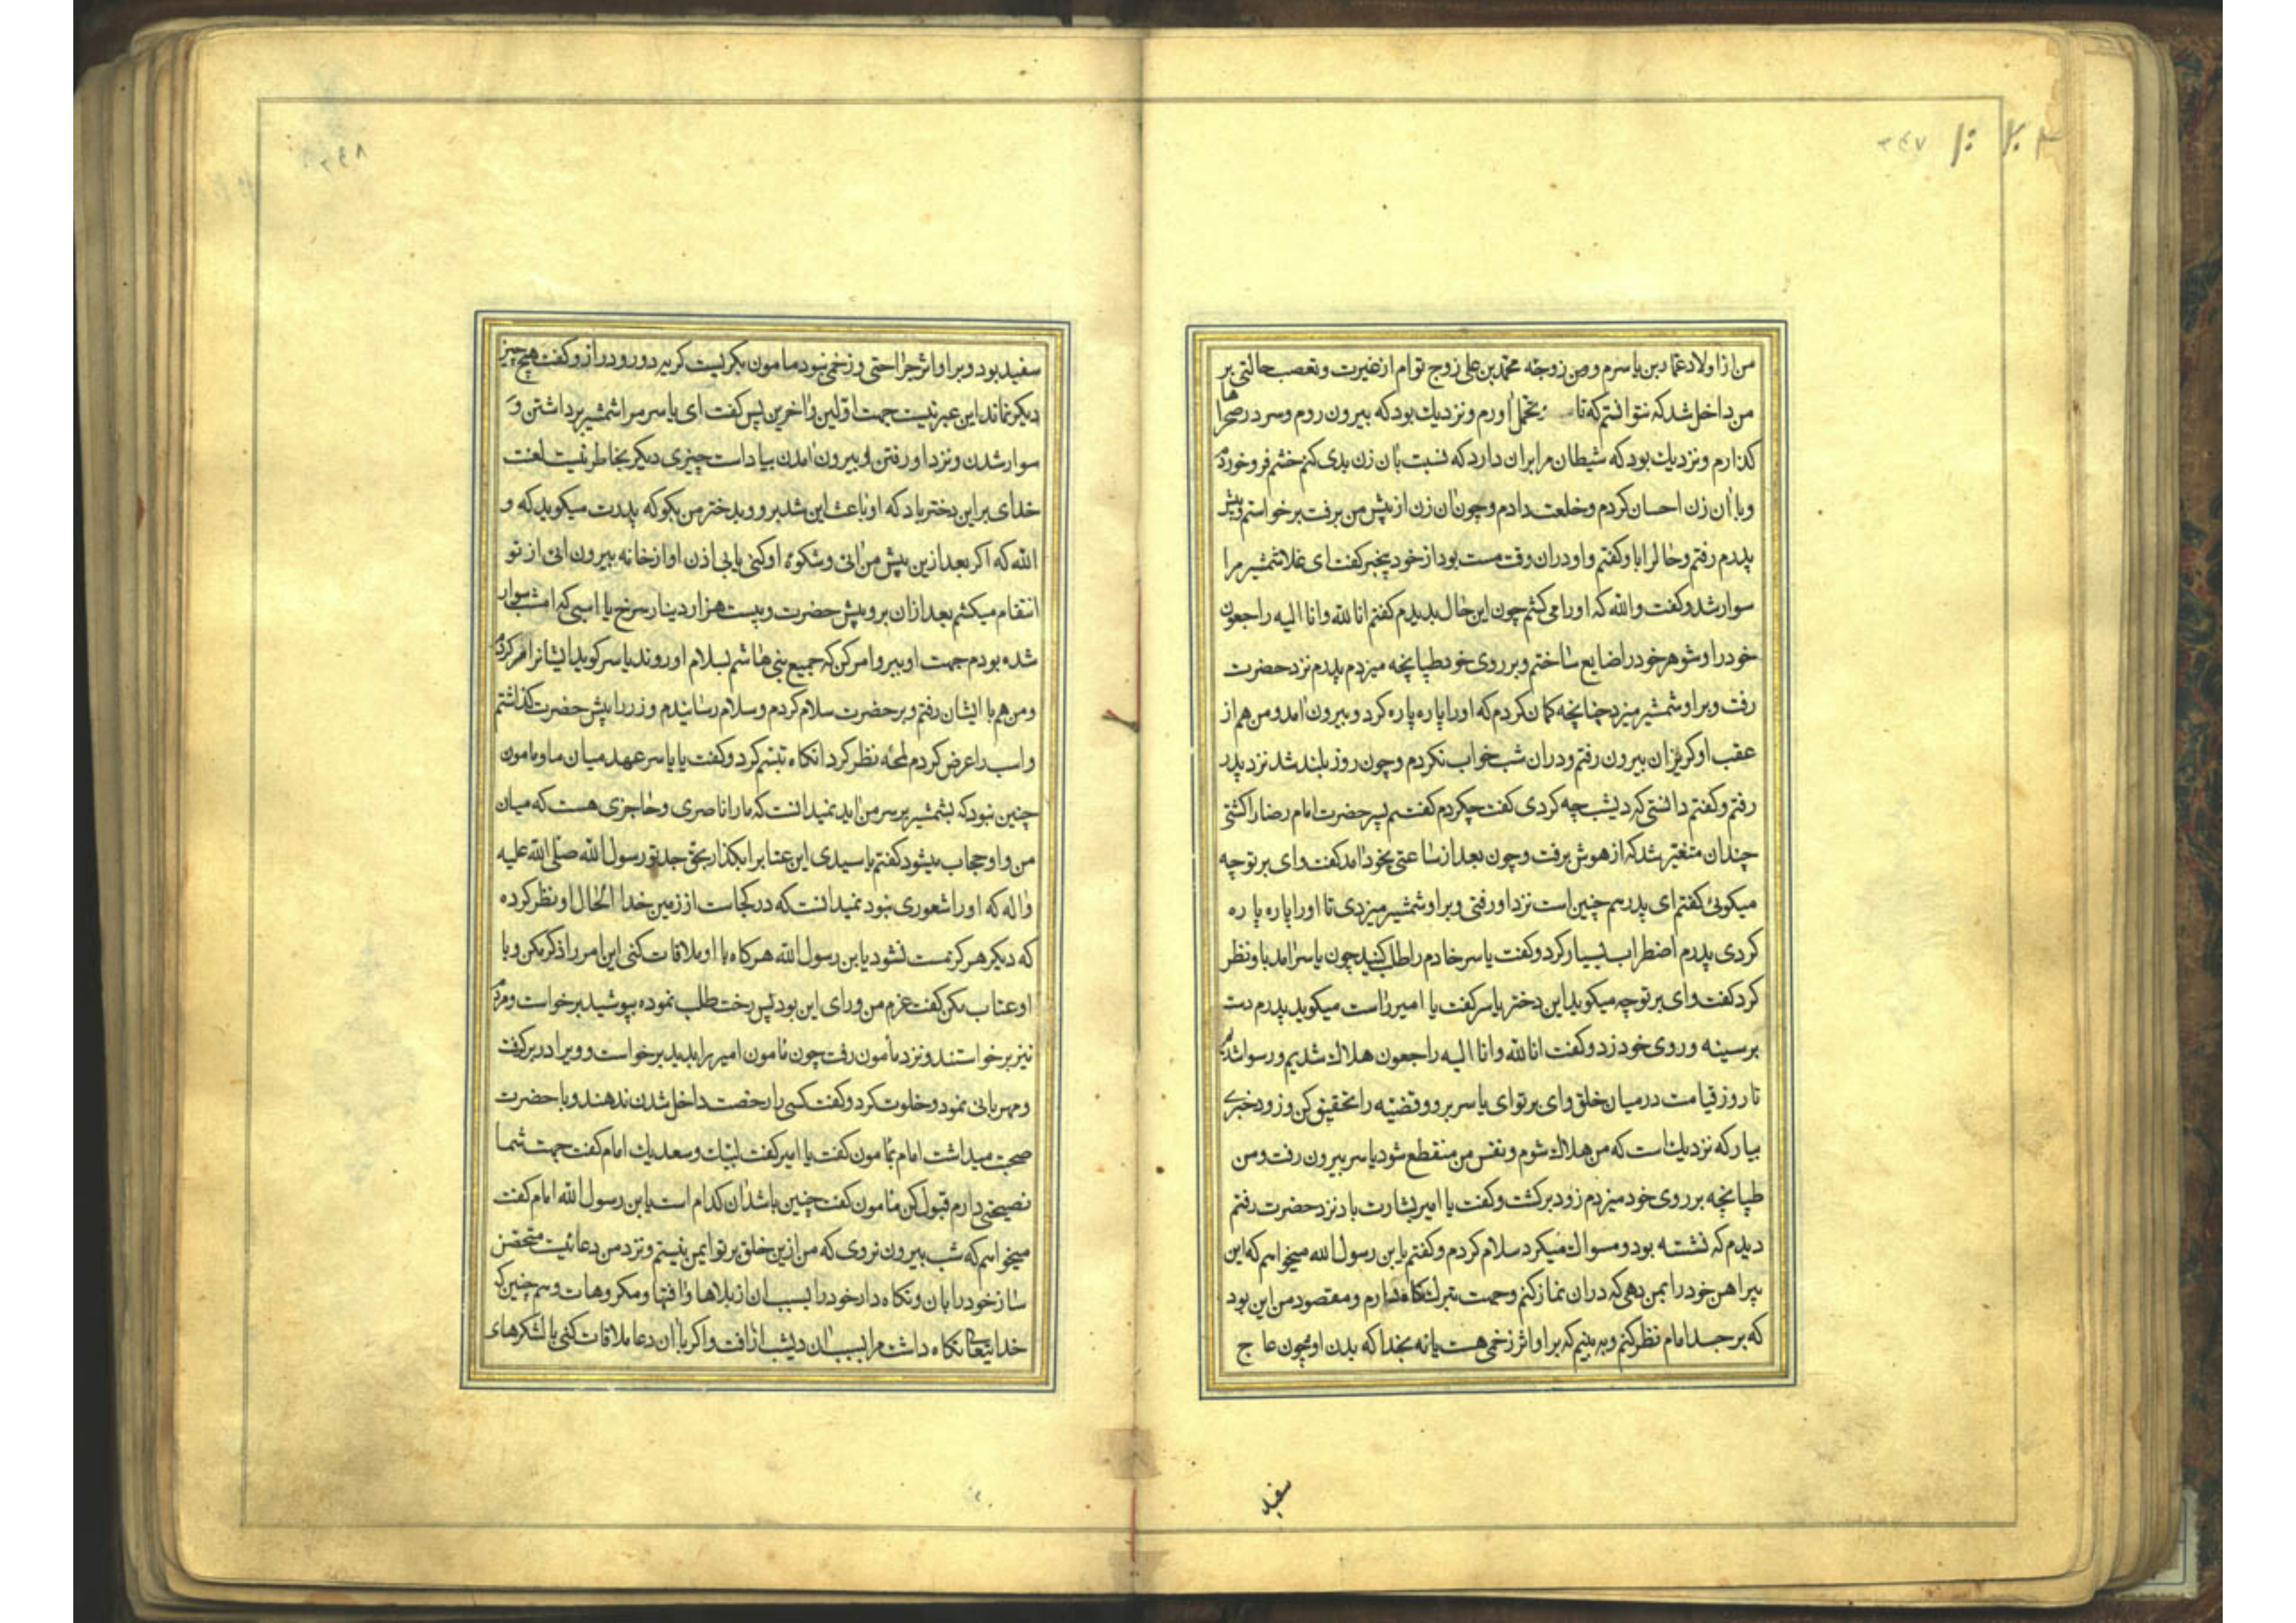 من از اولاد عمار بن یاسرم و من زوجه محمد بن علی زوج توام از غیرت و تعصب حالتی بر
من داخل شد که نتوانستم که تاب تحمل آورم و نزدیک بود که بیرون روم و سر در صحراها
گذارم و نزدیک بود که شیطان مرا بران دارد که نسبت بآن زن بدی کنم خشم فرو خوردم
و با آن زن احسان کردم و خلعت دادم و چون آن زن از پیش من برفت برخواستم و پیش
پدرم رفتم و حال را باو کفتم و او دران وقت مست بود از خود بیخبر کفت ای غلام شمشیر مرا
سوار شد و کفت والله که او را می کشم چون این حال بدیدم کفتم انا لله و انا الیه راجعون
خود را و شوهر خود را ضایع ساختم و بر روی خود طپانچه میزدم پدرم نزد حضرت
رفت و بر او شمشیر میزد چنانچه کمان کردم که او را پاره پاره کرد و بیرون آمد و من هم از
عقب او کریزان بیرون رفتم و دران شب خواب نکردم و چون روز بلند شد نزد پدر
رفتم و کفتم دانستی که دیشب چه کردی کفت چکردم کفتم پسر حضرت امام رضا را کشتی
چندان متغیر شد که از هوش برفت و چون بعد از ساعتی بخود آمد کفت وای بر تو چه
میکوئی کفتم ای پدر هم چنین است نزد او رفتی و بر او شمشیر میزدی تا او را پاره پاره
کردی پدرم اضطراب بسیار کرد و کفت یاسر خادم را طلب کنید چون یاسر آمد باو نظر
کرد کفت وای بر تو چه میکوید این دختر یاسر کفت یا امیر راست میکوید پدرم دست
بر سینه و روی خود زد و کفت انا لله و انا الیه راجعون هلاک شدیم و رسوا شدیم
تا روز قیامت در میان خلق وای بر تو ای یاسر برو و قضیه را تحقیق کن و زود خبری
بیار که نزدیک است که من هلاک شوم و نفس من منقطع شود یاسر بیرون رفت و من
طپانچه بر روی خود میزدم زود برکشت و کفت یا امیر بشارت باد نزد حضرت رفتم
دیدم که نشسته بود و مسواک میکرد سلام کردم و کفتم یا بن رسول الله میخواهم که این
پیراهن خود را بمن دهی که دران نماز کنم و جهت تبرک نکاه دارم و مقصود من این بود
که بر جسد امام نظر کنم و به بینم که بر او اثر زخمی هست یا نه بخدا که بدن او چون عاج
سفید
سفید بود و بر او اثر جراحتی و زخمی نبود مامون بکریست کریه دور و دراز و کفت هیچ چیز
دیکر نماند این عبرتیست جهت اولین و آخرین پس کفت ای یاسر مرا شمشیر برداشتن و
سوار شدن و نزد او رفتن و بیرون آمدن بیاد است چیزی دیکر بخاطر نیست لعنت
خدای بر این دختر باد که او باعث این شد برو و بدختر من بکو که پدرت میکوید که و
الله که اکر بعد ازین پیش من آئی و شکوه او کنی یا بی اذن او از خانه بیرون آئی از تو
انتقام میکشم بعد ازان برو پیش حضرت و بیست هزار دینار سرخ با اسبی که امشب سوار
شده بودم جهت او ببر و امر کن که جمیع بنی هاشم بسلام او روند یاسر کوید ایشانرا امر کردم
و من هم با ایشان رفتم و بر حضرت سلام کردم و سلام رسانیدم و زر را پیش حضرت کذاشتم
و اسب را عرض کردم لمحه نظر کرد انکاه تبسم کرد و کفت یا یاسر عهد میان ما و مامون
چنین نبود که بشمشیر بر سر من آید نمیدانست که ما را ناصری و حاجزی هست که میان
من و او حجاب میشود کفتم یا سیدی این عتاب را بکذار بحق جد تو رسول الله صلی الله علیه
و اله که او را شعوری نبود نمیدانست که در کجاست از زمین خدا الحال او نظر کرده
که دیکر هرکز مست نشود یا بن رسول الله هرکاه با او ملاقات کنی این امر را ذکر مکن و با
او عتاب مکن کفت عزم من و رای این بود پس رخت طلب نموده بپوشید برخواست و مردم
نیز برخواستند و نزد مأمون رفت چون مأمون امیر را بدید برخواست و ویرا در بر کرفت
و مهربانی نمود و خلوت کرد و کفت کسی را رخصت داخل شدن ندهند و با حضرت
صحبت میداشت امام بمامون کفت یا امیر کفت لبیک و سعدیک امام کفت جهت شما
نصیحتی دارم قبول کن مامون کفت چنین باشد آن کدام است یا بن رسول الله امام کفت
میخواهم که شب بیرون نروی که من ازین خلق بر تو ایمن نیستم و نزد من دعائیست متحصن
ساز خود را بان و نکاه دار خود را بسبب ان از بلاها و آفتها و مکروهات و هم چنین که
خدایتعالی نکاه داشت مرا بسبب ان دیشب از آفت و اکر با آن دعا ملاقات کنی با لشکرهای